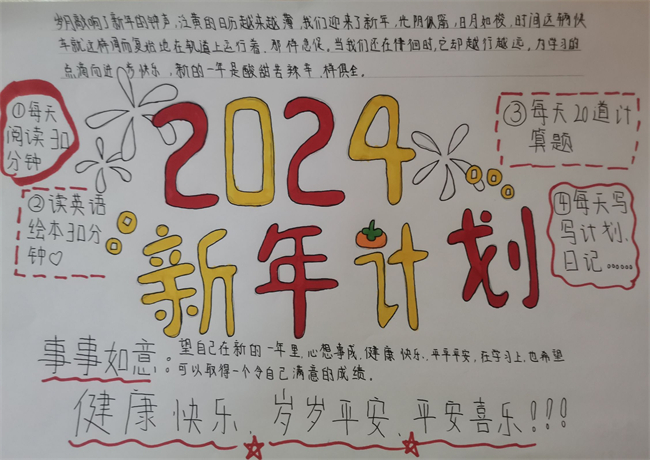 岁月敲响了新年的钟声,泛黄的日历越来越薄,我们迎来了新年,光阴似箭,日月如梭,时间这辆快
车就这样周而复始地在轨道上飞行着,那样急促。当我们还在徘徊时,它却越行越远,为学习的
点滴向进步快乐,新的一年是酸甜苦辣辛,样俱全。
①每天
阅读30
分钟
③每天20道计
算题
2024
②读英语
绘本30分
钟♡
④每天写
写计划、
日记……
新年计划
事事如意:望自己在新的一年里,心想事成,健康快乐,平平平安,在学习上,也希望
可以取得一个令自己满意的成绩。
健康快乐、岁岁平安、平安喜乐!!!